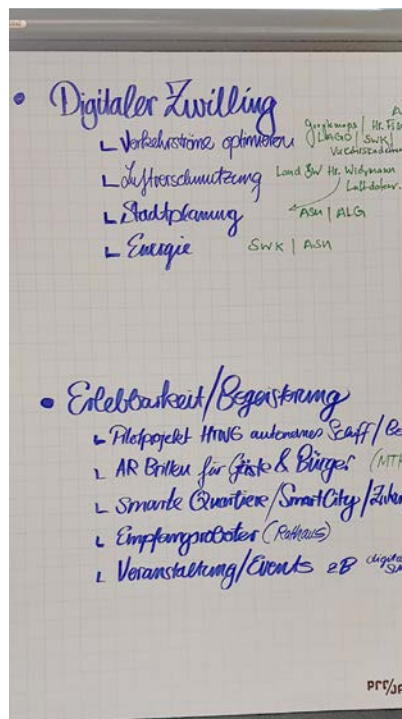 • Digitaler Zwilling
A
Googlemaps / Hr. Fis
∟ Verkehrsströme optimieren LAGO / SWK /
∟ Luftverschmutzung Land BW Hr. Widmann
Luftdaten.
∟ Stadtplanung ASU / ALG
∟ Energie SWK / ASU
• Erlebbarkeit/Begeisterung
∟ Pilotprojekt HTWG autonomes Schiff/Bo
∟ AR Brillen für Gäste & Bürger (MTK
∟ Smarte Quartiere/SmartCity/Zuku
∟ Empfangsroboter (Rathaus)
∟ Veranstaltung/Events zB digita